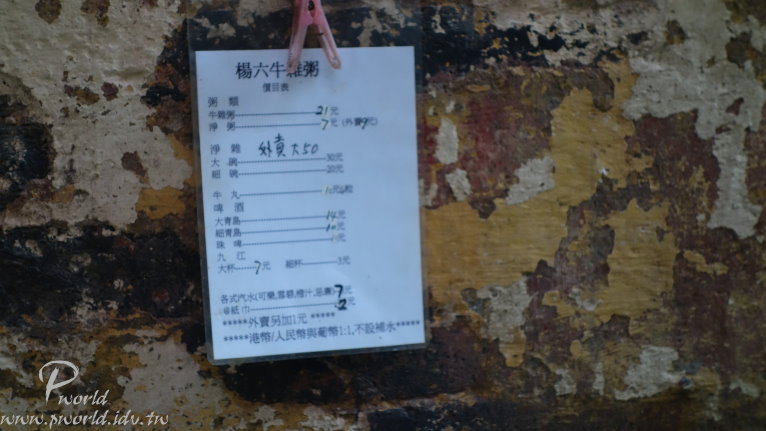 楊六牛雜粥
價目表
粥 類
牛雜粥 21元
淨 粥 7元 (外賣9元)
淨 雜 外賣大50
大 碗 30元
細 碗 20元
牛 丸 元 粒
啤 酒
大青島 14元
細青島 10元
珠 啤 元
九 江
大杯 7元 細杯 3元
各式汽水(可樂,雪碧,橙汁,忌廉) 7元
紙巾 2元
*****外賣另加1元 *****
*****港幣/人民幣與葡幣1:1,不設補水*****
Pworld
www.pworld.idv.tw